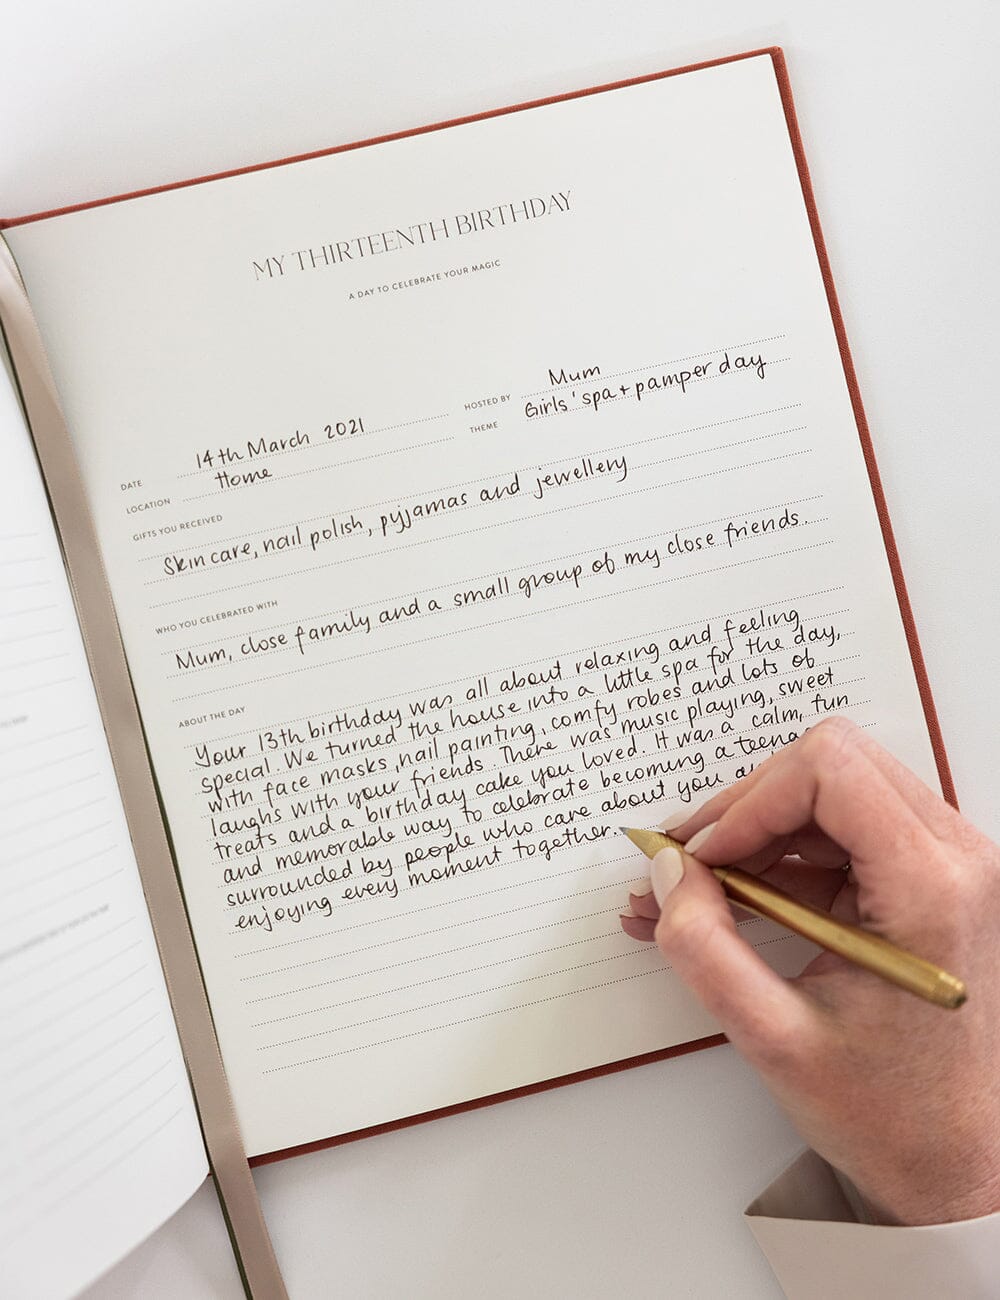 MY THIRTEENTH BIRTHDAY
A DAY TO CELEBRATE YOUR MAGIC
DATE 14th March 2021
LOCATION Home
HOSTED BY Mum
THEME Girls' spa + pamper day
GIFTS YOU RECEIVED
Skincare, nail polish, pyjamas and jewellery
WHO YOU CELEBRATED WITH
Mum, close family and a small group of my close friends.
ABOUT THE DAY
Your 13th birthday was all about relaxing and feeling
special. We turned the house into a little spa for the day,
with face masks, nail painting, comfy robes and lots of
laughs with your friends. There was music playing, sweet
treats and a birthday cake you loved. It was a calm, fun
and memorable way to celebrate becoming a
surrounded by people who care about you
enjoying every moment together.